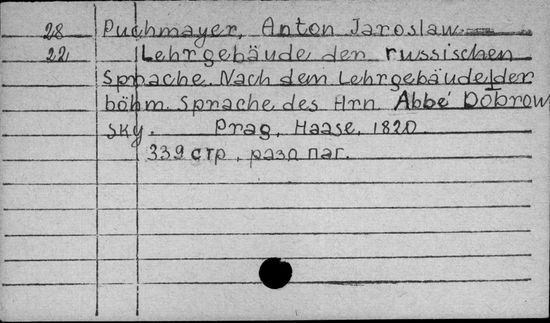 28 Puchmayer, Anton Jaroslaw.
22 Lehrgebäude den russischen
Sprache. Nach dem Lehrgebäude der
böhm. Sprache des Hrn Abbé Dobrow
sky. Prag, Haase, 1820.
339 стр, разд паг.